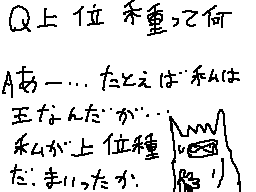 Q上位種って何
Aあー…たとえば私は
王なんだが…
私が上位種
だ。まいったか。